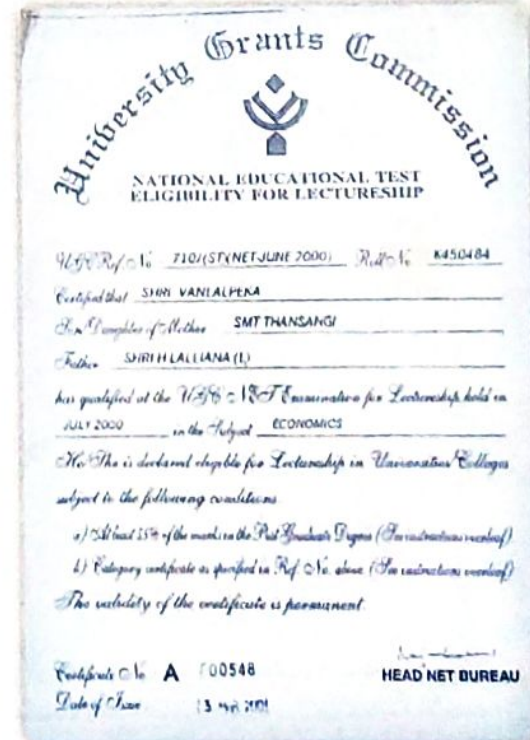 University Grants Commission
NATIONAL EDUCATIONAL TEST
ELIGIBILITY FOR LECTURESHIP
UGC Ref. No 710/(ST)(NET-JUNE 2000) Roll No K450484
Certified that SHRI VANLALPEKA
Son/Daughter of Mother SMT THANSANGI
Father SHRI H LALLIANA (L)
has qualified at the UGC-NET Examination for Lectureship held in
JULY 2000 in the Subject ECONOMICS
He/She is declared eligible for Lectureship in Universities/Colleges
subject to the following conditions
a) At least 55% of the marks in the Post Graduate Degree (See instructions overleaf)
b) Category certificate as specified in Ref. No. above (See instructions overleaf)
The validity of the certificate is permanent.
Certificate No A 00548
HEAD NET BUREAU
Date of Issue